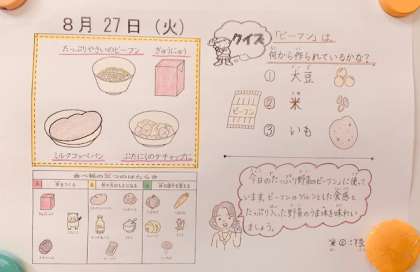 8月27日（火）
たっぷりやさいのビーフン
ぎゅうにゅう
ミルクコッペパン
ぶたにくのケチャップに
クイズ
「ビーフン」は、
何から作られているかな？
① 大豆
② 米
③ いも
ビーフン
今日の「たっぷり野菜のビーフン」に使って
います。ビーフンのツルンとした食感と
たっぷり入った野菜のうま味を味わい
ましょう。